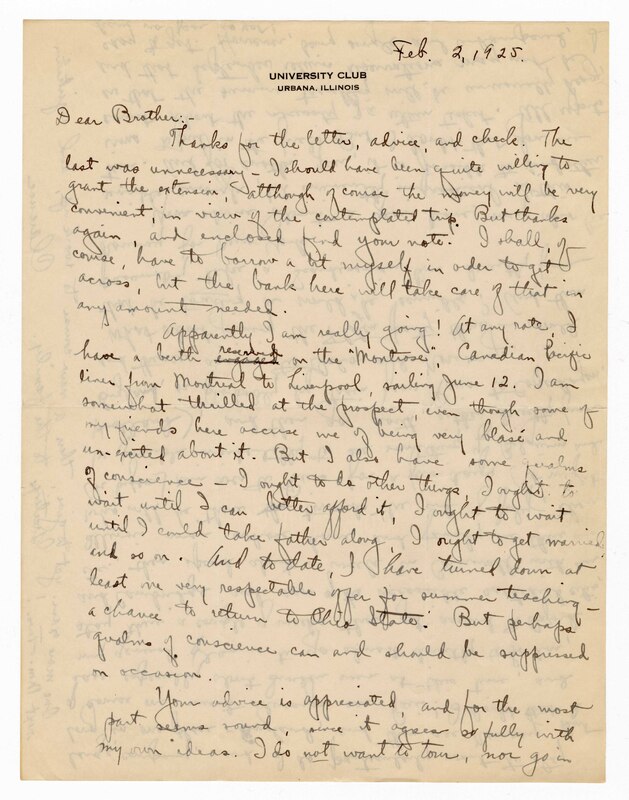 Feb. 2, 1925.
UNIVERSITY CLUB
URBANA, ILLINOIS
Dear Brother:-
Thanks for the letter, advice, and check. The
last was unnecessary - I should have been quite willing to
grant the extension, although of course the money will be very
convenient, in view of the contemplated trip. But thanks
again, and enclosed find your note. I shall, of
course, have to borrow a bit myself in order to get
across, but the bank here will take care of that in
any amount needed.
Apparently I am really going! At any rate, I
have a berth engaged reserved on the "Montrose", Canadian Pacific
liner from Montreal to Liverpool, sailing June 12. I am
somewhat thrilled at the prospect, even though some of
my friends here accuse me of being very blasé and
un-excited about it. But I also have some qualms
of conscience - I ought to do other things, I ought to
wait until I can better afford it, I ought to wait
until I could take father along, I ought to get married,
and so on. And to date, I have turned down at
least one very respectable offer for summer teaching -
a chance to return to Ohio State. But perhaps
qualms of conscience can and should be suppressed
on occasion.
Your advice is appreciated, and for the most
part seems sound, since it agrees so fully with
my own ideas. I do not want to tour, nor go in